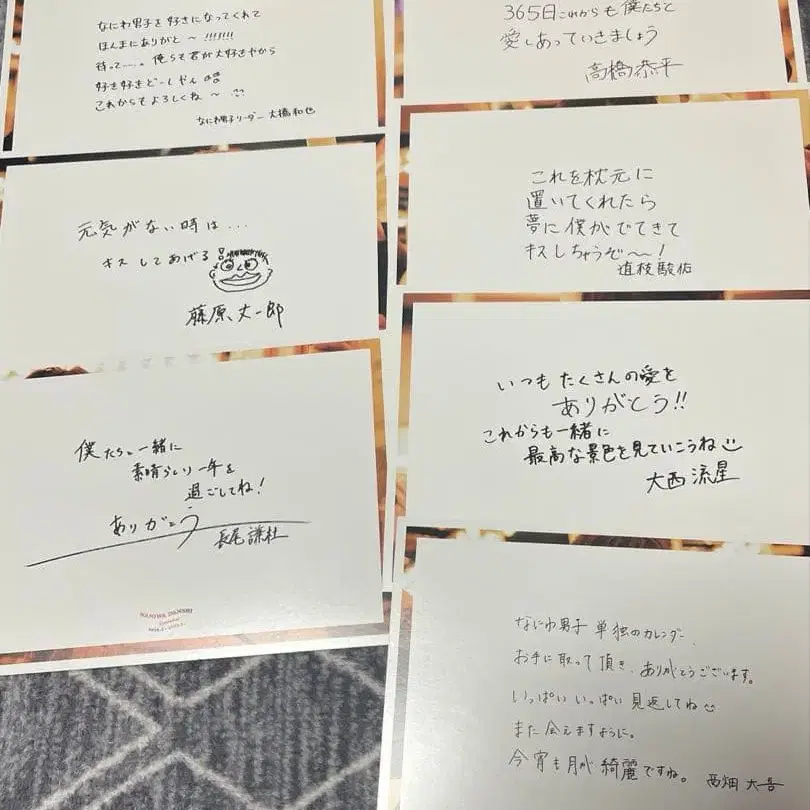 なにわ男子を好きになってくれて
ほんまにありがと〜!!!!!!!
待って……。俺らも君が大好きやから
好き好きどーしやん
これからもよろしくね〜
なにわ男子リーダー 大橋和也
365日これからも僕たちと
愛しあっていきましょう
高橋恭平
元気がない時は...
キスしてあげる!
藤原丈一郎
これを枕元に
置いてくれたら
夢に僕がでてきて
キスしちゃうぞ〜!
道枝駿佑
僕たちと一緒に
素晴らしい一年を
過ごしてね!
ありがとう
長尾謙杜
NANIWA DANSHI
いつもたくさんの愛を
ありがとう!!
これからも一緒に
最高な景色を見ていこうね
大西流星
なにわ男子 単独のカレンダー、
お手に取って頂き、ありがとうございます。
いっぱいいっぱい見返してね
また会えますように。
今宵も月が綺麗ですね。 西畑大吾